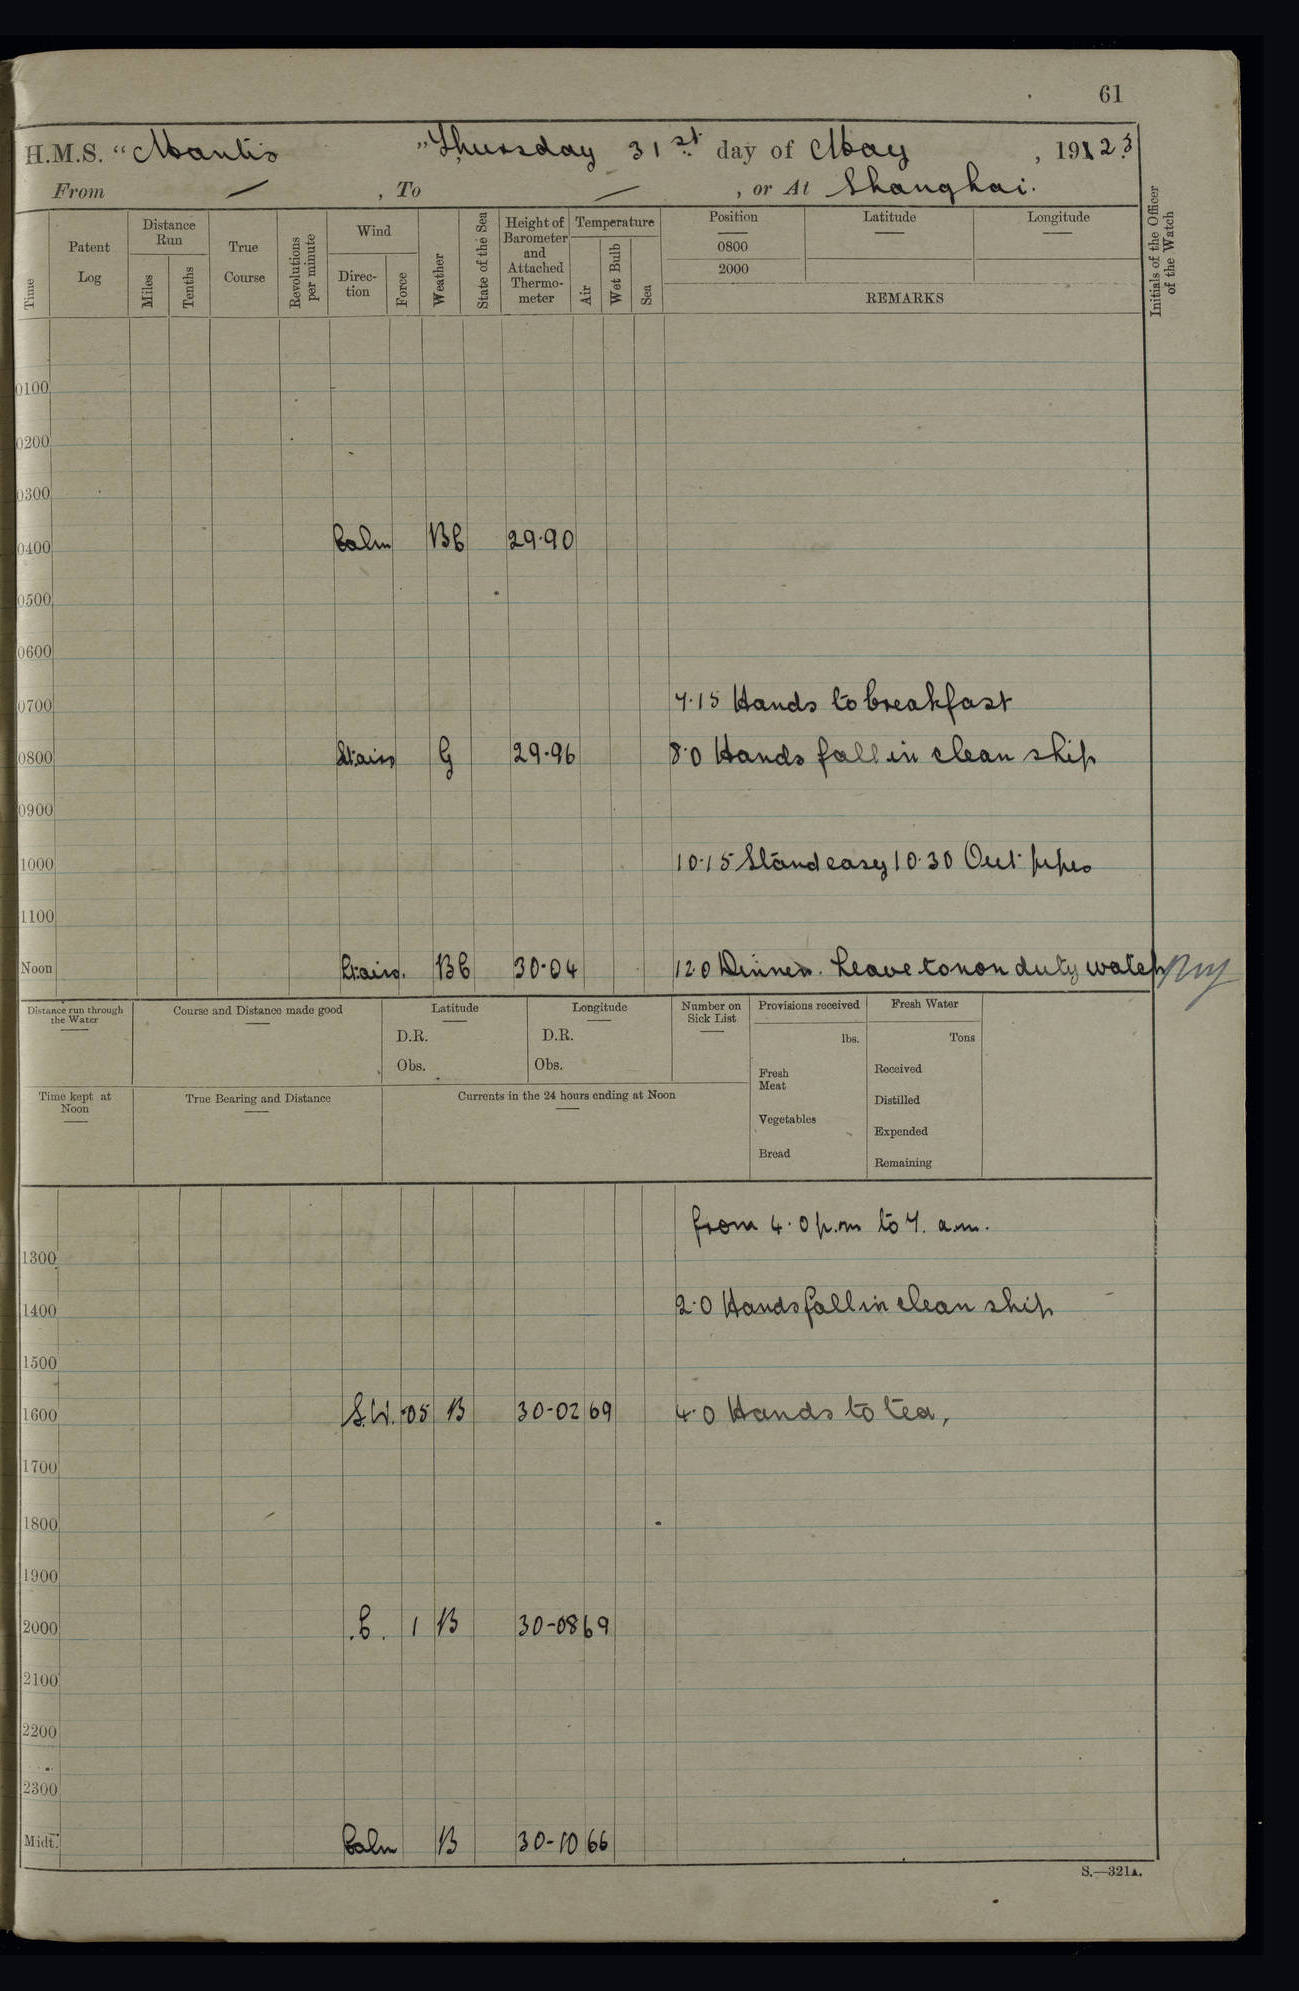 61
H.M.S. "Mantis" Thursday 31st day of May, 1923
From —, To —, or At Shanghai.
Time
Patent Log
Distance Run
Miles
Tenths
True Course
Revolutions per minute
Wind
Direction
Force
Weather
State of the Sea
Height of Barometer and Attached Thermometer
Temperature
Air
Wet Bulb
Sea
Position
0800
2000
Latitude
Longitude
REMARKS
Initials of the Officer of the Watch
0100
0200
0300
0400 Calm BC 29.90
0500
0600
0700 7.15 Hands to breakfast
0800 G 29.96 8.0 Hands fall in clean ship
0900
1000 10.15 Stand easy 10.30 Out pipes
1100
Noon BC 30.04 12.0 Dinner. Leave to non duty watch
Distance run through the Water
Course and Distance made good
Latitude
D.R.
Obs.
Longitude
D.R.
Obs.
Number on Sick List
Provisions received
lbs.
Fresh Meat
Vegetables
Bread
Fresh Water
Tons
Received
Distilled
Expended
Remaining
Time kept at Noon
True Bearing and Distance
Currents in the 24 hours ending at Noon
from 4.0 p.m to 7. a.m.
1300
1400 2.0 Hands fall in clean ship
1500
1600 S.W. .05 B 30-02 69 4.0 Hands to tea,
1700
1800
1900
2000 .C. 1 B 30-08 69
2100
2200
2300
Midt. Calm B 30-10 66
S.—321A.